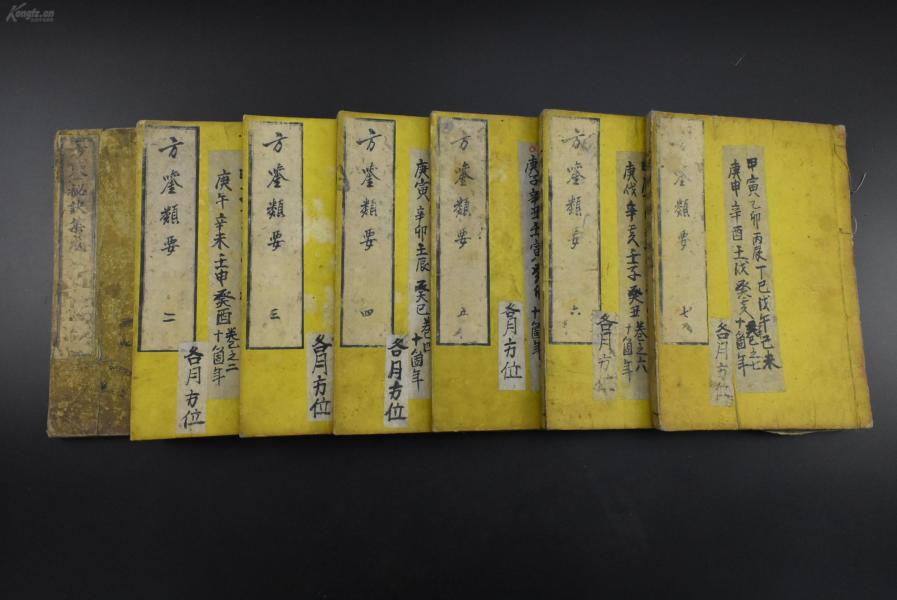 Kongfz.cn
秘訣
方鑒類要 二
庚午辛未壬申癸酉卷之二
十箇年
各月方位
方鑒類要 三
各月方位
方鑒類要 四
庚寅辛卯壬辰癸巳卷四
十箇年
各月方位
方鑒類要 五
庚子辛丑壬寅癸卯
十箇年
各月方位
方鑒類要 六
庚戌辛亥壬子癸丑卷之六
十箇年
各月方位
鑒類要 七
甲寅乙卯丙辰丁巳戊午己未
庚申辛酉壬戌癸亥卷之七
十箇年
各月方位